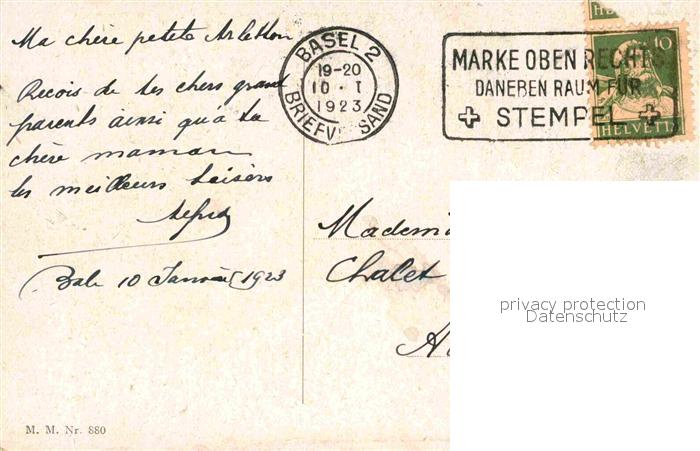 Ma chère petite Arletton
Reçois de tes chers grand
parents ainsi qu'à ta
chère maman
les meilleurs baisers
Bale 10 Janvier 1923
BASEL 2
19-20
10 · I
1923
BRIEFV SAND
MARKE OBEN RECHTS
DANEBEN RAUM FÜR
STEMPEL
10
HELVETIA
HELVETIA
Chalet
privacy protection
Datenschutz
M. M. Nr. 880